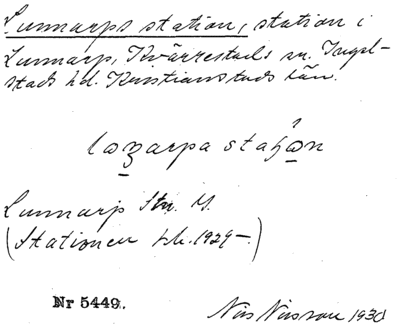 Lunnarps station, station i
Lunnarp, Kvärrestads sn. Ingel-
stads hd. Kristianstads län.
Lunnarp Stn. M.
(Stationen t.h. 1929-.)
Nr 5449.
Nils Nilsson 1930